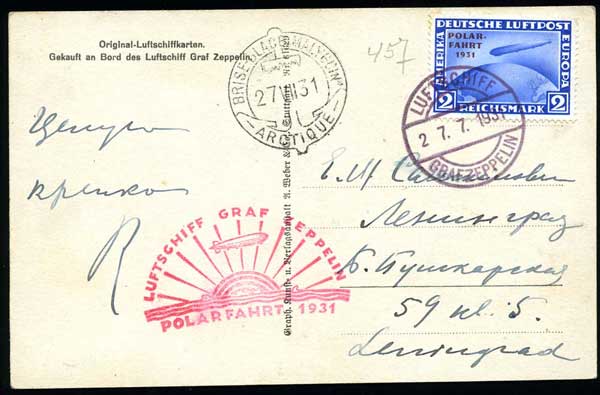 Original-Luftschiffkarten.
Gekauft an Bord des Luftschiff Graf Zeppelin.
BRISE-GLACE "MALYGUIN"
27 VII 31
ARCTIQUE
457
DEUTSCHE LUFTPOST
POLAR-
FAHRT
1931
AMERIKA
EUROPA
2 REICHSMARK 2
LUFTSCHIFF
27.7.1931
GRAF ZEPPELIN
Целую
крепко
R
Е. М.
Ленинград
Б. Пушкарская
59 кв. 5.
Leningrad
LUFTSCHIFF GRAF ZEPPELIN
POLARFAHRT 1931
Graph. Kunst- u. Verlagsanstalt A. Weber & Co., Stuttgart